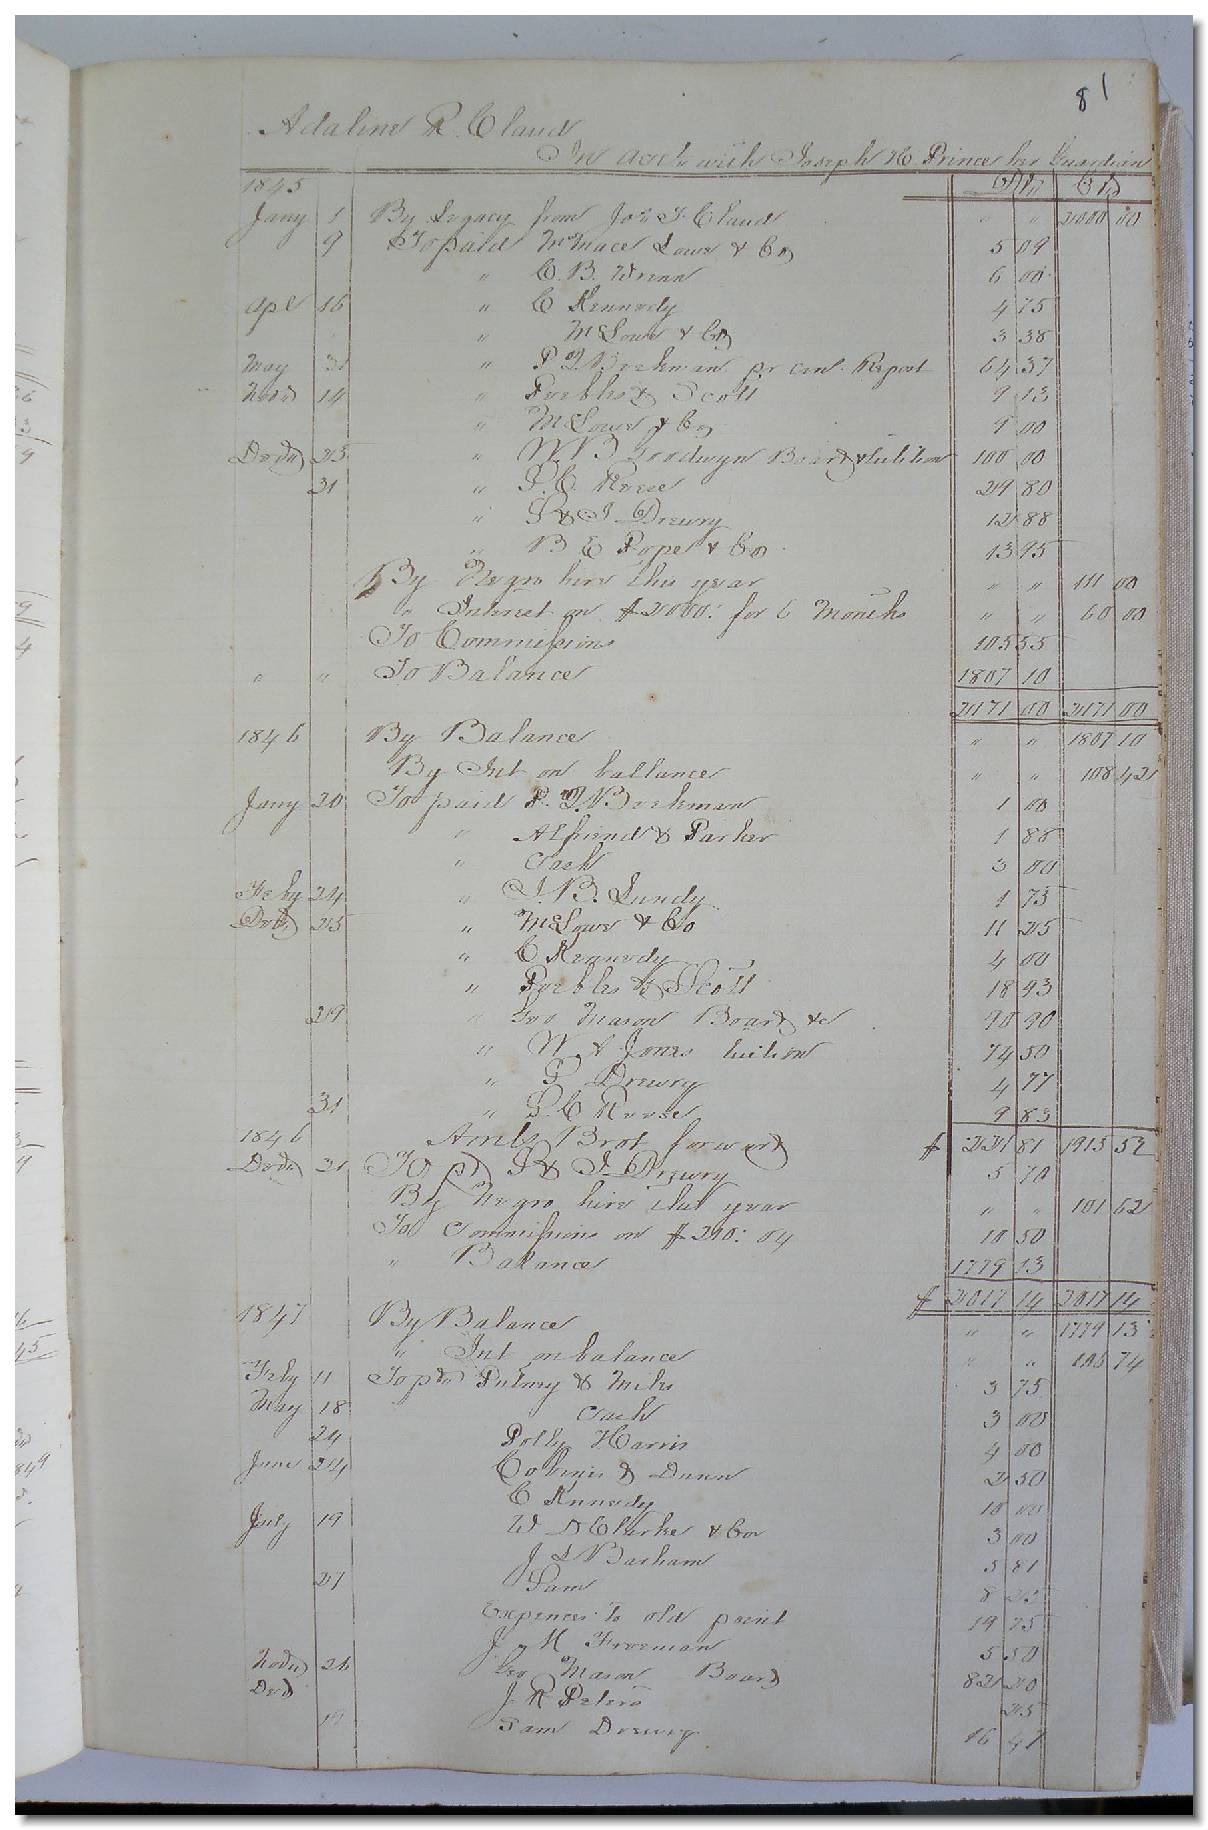 81
Adaline R. Claud
In acct with Joseph H. Prince her Guardian
1845 Dr Cr
Jany 1 By Legacy from Jos. T. Claud " " 2000 00
9 To paid McLowe & Co 5 09
" C. B. Wrenn 6 00
Apl 16 " C Kennedy 4 75
" McLowe & Co 3 38
May 31 " P. T. Beekman pr com. Report 64 37
Novr 14 " Peebles & Scott 9 13
" McLowe & Co 9 00
Decr 25 " W. B. Goodwyn Board & tuition 100 00
31 " S. C. Reese 29 80
" S & J Drewry 12 88
" B E Pope & Co 13 95
By Negro hire this year " " 111 00
" Interest on $2000: for 6 Months " " 60 00
To Commissions 105 55
" " To Balance 1807 10
2171 00 2171 00
1846 By Balance " " 1807 10
By Int on ballance " " 108 42
Jany 20 To paid P. T. Beekman 1 00
" Alfriend & Parker 1 88
" Cash 3 00
Feby 24 " J. B. Lundy 1 75
Decr 25 " McLowe & Co 11 25
" C Kennedy 4 00
" Peebles & Scott 18 93
29 " Geo Mason Board &c 90 90
" W. A Jones tuition 74 50
" S Drewry 4 77
31 " S. C Reese 9 83
1846 Amts Brot forward $ 221 81 1915 52
Decr 31 To pd S & J. Drewry 5 70
By Negro hire this year " " 101 62
To Commissions on $210: 04 10 50
" Balance 1779 13
$ 2017 14 2017 14
1847 By Balance " " 1779 13
" Int on balance " " 106 74
Feby 11 To pd Pulney & Miles 3 75
May 18 Cash 3 00
24 Polly Harris 4 00
June 24 & Dunn 2 50
C Kennedy 10 00
July 19 W D Clarke & Co 3 00
J. L Barham 5 81
27 Sam 8 25
Expences to old point 19 75
J. H Freeman 5 50
Novr 26 Geo Mason Board 82 20
Decr J. R Peters 25
19 Sam Drewry 16 47